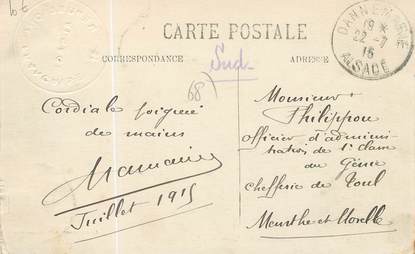 CARTE POSTALE
CORRESPONDANCE
ADRESSE
Sud
68
DANNEMARIE
19
22 - 7
15
ALSACE
Cordiale poignée
de mains
Juillet 1915
Monsieur
Philippon
officier d'adminis-
tration de 1e classe
du Génie
Chefferie de Toul
Meurthe et Moselle